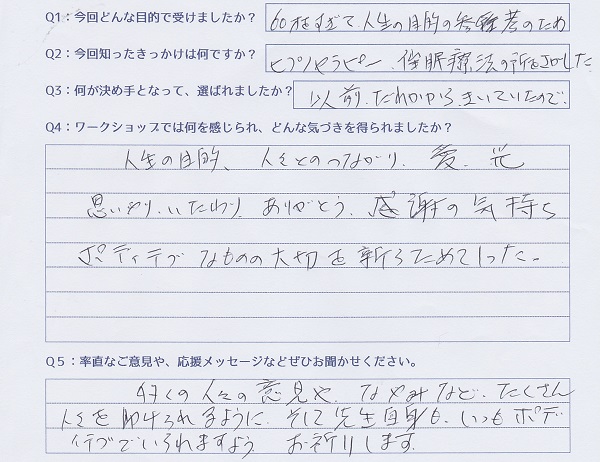 Q1：今回どんな目的で受けましたか？ 60才をすぎて、人生の目的の参考のため
Q2：今回知ったきっかけは何ですか？ ヒプノセラピー、催眠療法の所をさがした
Q3：何が決め手となって、選ばれましたか？ 以前、だれかからきいていたので、
Q4：ワークショップでは何を感じられ、どんな気づきを得られましたか？
人生の目的、人々とのつながり、愛、光
思いやり、いたわり、ありがとう、感謝の気持ち
ポディティブなものの大切を新らためてしった。
Q5：率直なご意見や、応援メッセージなどぜひお聞かせください。
多くの人々の意見や、なやみなど、たくさん
人々を助けられるように、そして先生自身も、いつもポデ
ィティブでいられますよう お祈りします